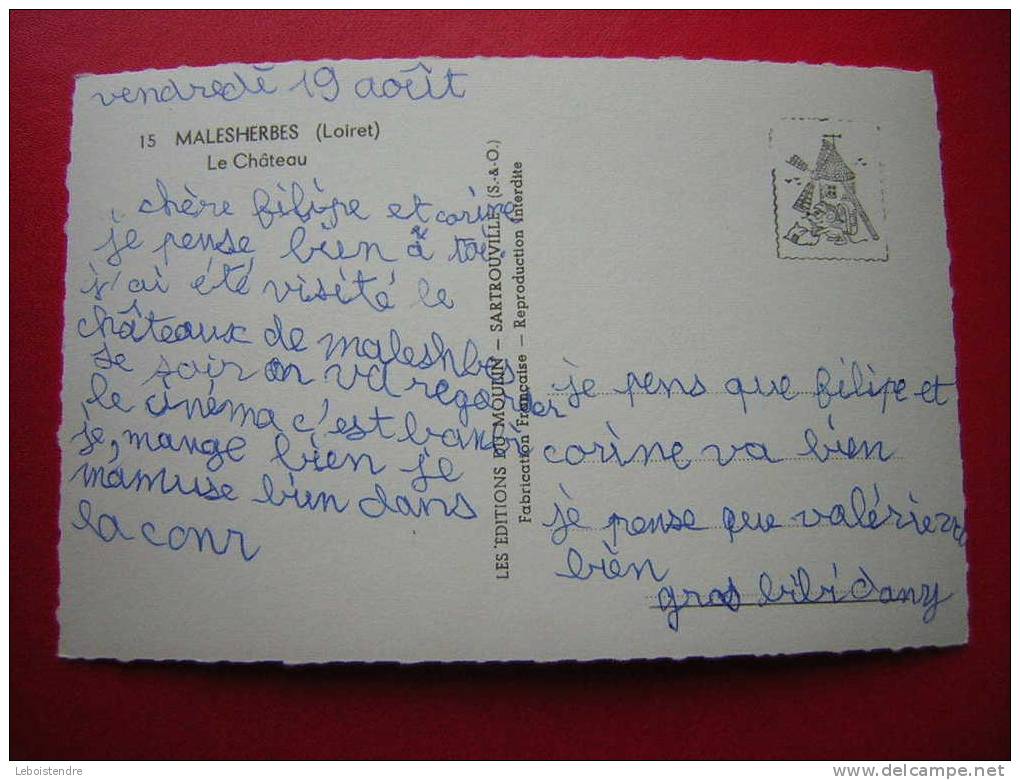 vendredi 19 août
15 MALESHERBES (Loiret)
Le Château
chère filipe et corine
je pense bien à toi
j'ai été visité le
châteaux de maleshbes
se soir on va regarder
le cinéma c'est
je, mange bien je
mamuse bien dans
la cour
LES EDITIONS DU MOULIN — SARTROUVILLE (S.-&-O.)
Fabrication Française — Reproduction Interdite
je pens que filipe et
corine va bien
je pense que valérie va
bien
gros bibi dany
Leboistendre
delcampe.net